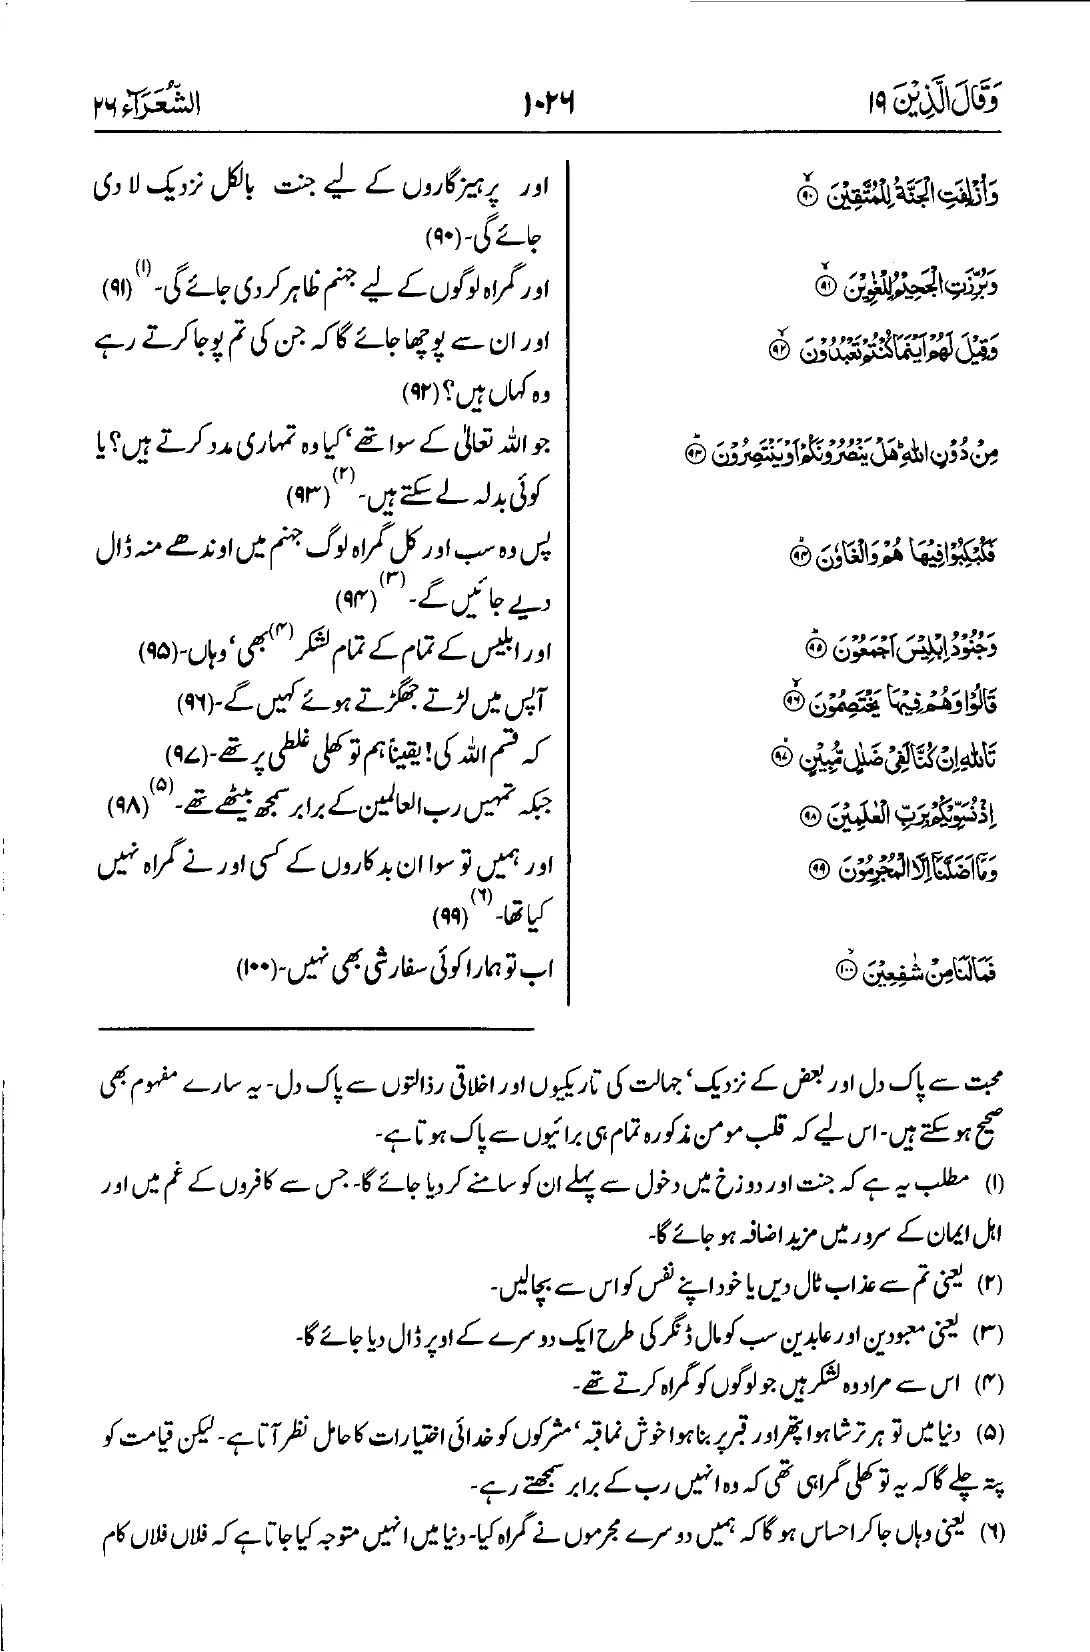 وَقَالَ الَّذِيْنَ ١٩
١٠٢٦
الشُّعَرَآء ٢٦
وَاُزْلِفَتِ الْجَنَّةُ لِلْمُتَّقِيْنَ ﴿٩٠﴾
اور پرہیزگاروں کے لیے جنت بالکل نزدیک لا دی
جائے گی۔ (٩٠)
وَبُرِّزَتِ الْجَحِيْمُ لِلْغٰوِيْنَ ﴿٩١﴾
اور گمراہ لوگوں کے لیے جہنم ظاہر کردی جائے گی۔ (١) (٩١)
وَقِيْلَ لَهُمْ اَيْنَمَا كُنْتُمْ تَعْبُدُوْنَ ﴿٩٢﴾
اور ان سے پوچھا جائے گا کہ جن کی تم پوجا کرتے رہے
وہ کہاں ہیں؟ (٩٢)
مِنْ دُوْنِ اللّٰهِ ؕ هَلْ يَنْصُرُوْنَكُمْ اَوْ يَنْتَصِرُوْنَ ﴿٩٣﴾
جو اللہ تعالیٰ کے سوا تھے، کیا وہ تمہاری مدد کرتے ہیں؟ یا
کوئی بدلہ لے سکتے ہیں۔ (٢) (٩٣)
فَكُبْكِبُوْا فِيْهَا هُمْ وَالْغَاوٗنَ ﴿٩٤﴾
پس وہ سب اور کل گمراہ لوگ جہنم میں اوندھے منہ ڈال
دیے جائیں گے۔ (٣) (٩٤)
وَجُنُوْدُ اِبْلِيْسَ اَجْمَعُوْنَ ﴿٩٥﴾
اور ابلیس کے تمام کے تمام لشکر (٤) بھی، وہاں۔ (٩٥)
قَالُوْا وَهُمْ فِيْهَا يَخْتَصِمُوْنَ ﴿٩٦﴾
آپس میں لڑتے جھگڑتے ہوئے کہیں گے۔ (٩٦)
تَاللّٰهِ اِنْ كُنَّا لَفِيْ ضَلٰلٍ مُّبِيْنٍ ﴿٩٧﴾
کہ قسم اللہ کی! یقیناً ہم تو کھلی غلطی پر تھے۔ (٩٧)
اِذْ نُسَوِّيْكُمْ بِرَبِّ الْعٰلَمِيْنَ ﴿٩٨﴾
جبکہ تمہیں رب العالمین کے برابر سمجھ بیٹھے تھے۔ (٥) (٩٨)
وَمَآ اَضَلَّنَآ اِلَّا الْمُجْرِمُوْنَ ﴿٩٩﴾
اور ہمیں تو سوا ان بدکاروں کے کسی اور نے گمراہ نہیں
کیا تھا۔ (٦) (٩٩)
فَمَا لَنَا مِنْ شٰفِعِيْنَ ﴿١٠٠﴾
اب تو ہمارا کوئی سفارشی بھی نہیں۔ (١٠٠)
محبت سے پاک دل اور بعض کے نزدیک، جہالت کی تاریکیوں اور اخلاقی رذالتوں سے پاک دل۔ یہ سارے مفہوم بھی
صحیح ہو سکتے ہیں۔ اس لیے کہ قلب مومن مذکورہ تمام ہی برائیوں سے پاک ہوتا ہے۔
(١) مطلب یہ ہے کہ جنت اور دوزخ میں دخول سے پہلے ان کو سامنے کر دیا جائے گا۔ جس سے کافروں کے غم میں اور
اہل ایمان کے سرور میں مزید اضافہ ہو جائے گا۔
(٢) یعنی تم سے عذاب ٹال دیں یا خود اپنے نفس کو اس سے بچالیں۔
(٣) یعنی معبودین اور عابدین سب کو مال ڈنگر کی طرح ایک دوسرے کے اوپر ڈال دیا جائے گا۔
(٤) اس سے مراد وہ لشکر ہیں جو لوگوں کو گمراہ کرتے تھے۔
(٥) دنیا میں تو ہر ترشا ہوا پتھر اور قبر پر بنا ہوا خوش نما قبہ، مشرکوں کو خدائی اختیارات کا حامل نظر آتا ہے۔ لیکن قیامت کو
پتہ چلے گا کہ یہ تو کھلی گمراہی تھی کہ وہ انہیں رب کے برابر سمجھتے رہے۔
(٦) یعنی وہاں جا کر احساس ہو گا کہ ہمیں دوسرے مجرموں نے گمراہ کیا۔ دنیا میں انہیں متوجہ کیا جاتا ہے کہ فلاں فلاں کام